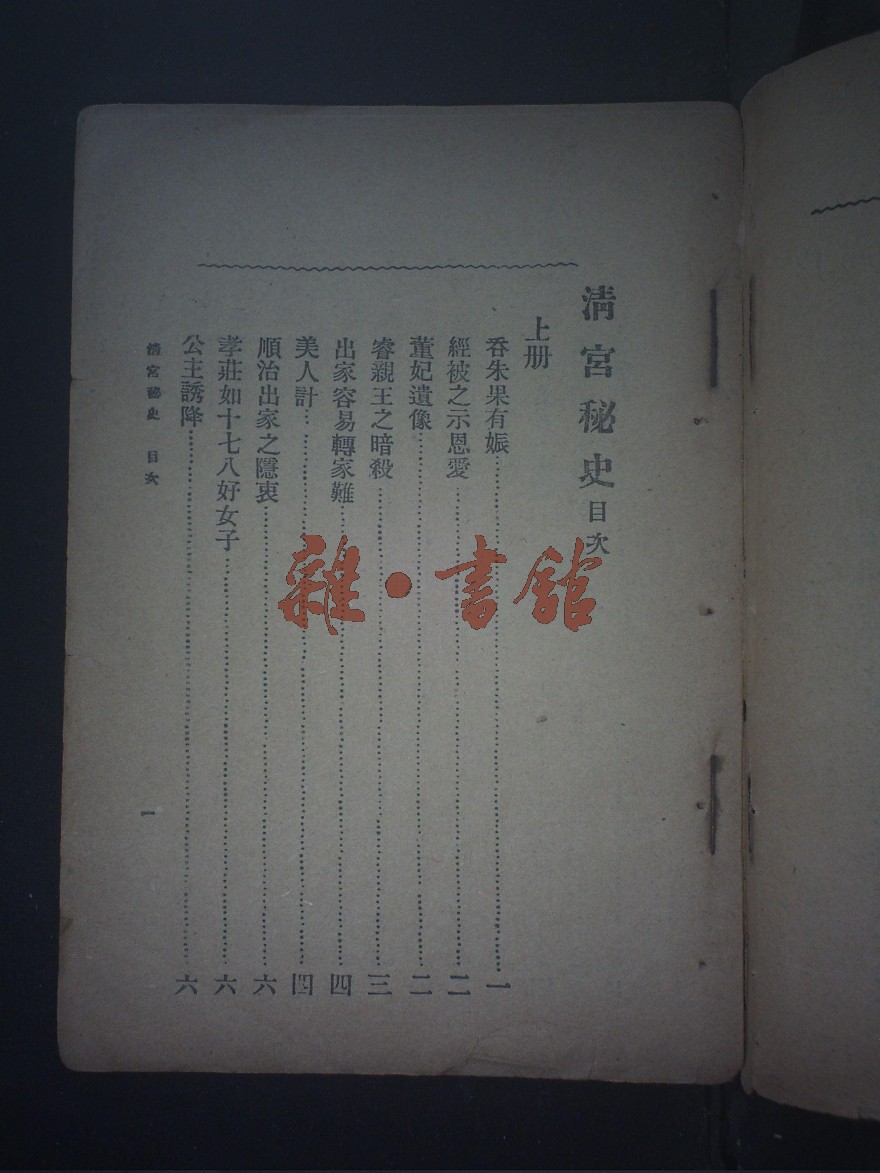 清宮秘史目次
上册
吞朱果有娠……一
經被之示恩愛……二
董妃遺像……二
睿親王之暗殺……三
出家容易轉家難……四
美人計……四
順治出家之隱衷……六
孝莊如十七八好女子……六
公主誘降……六
清宮秘史 目次
一
雜·書館